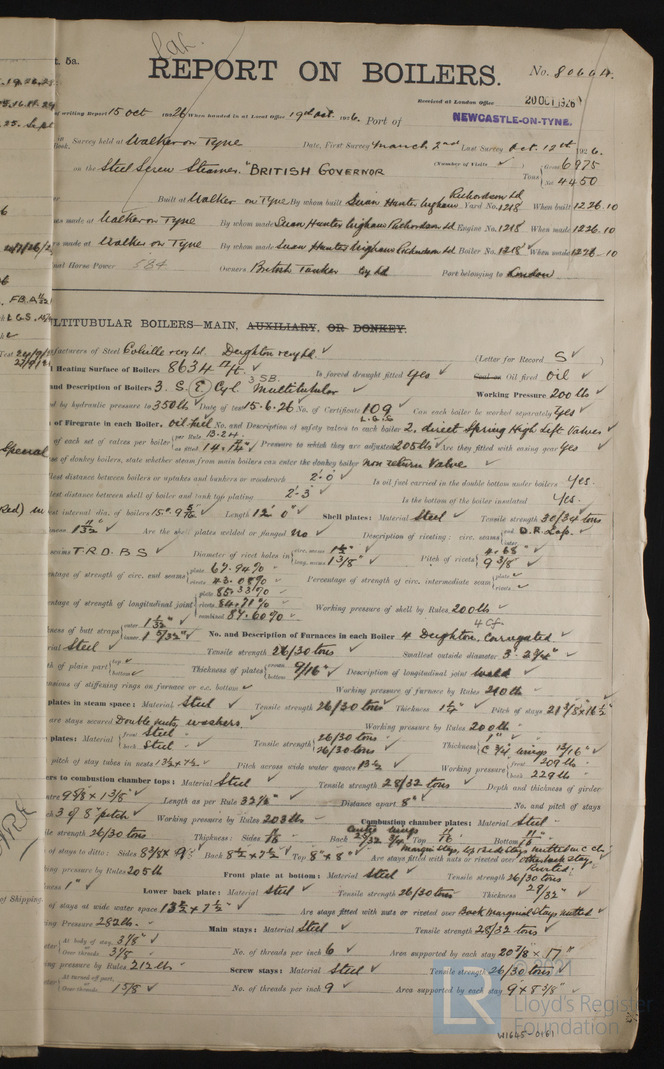 t. 5a.
REPORT ON BOILERS.
No. 80664.
Received at London Office 20 OCT 1926
of writing Report 15 Oct 1926 When handed in at Local Office 19th Oct. 1926. Port of NEWCASTLE-ON-TYNE.
in Book. Survey held at Walker on Tyne Date, First Survey March 2nd Last Survey Oct. 12th 1926.
on the Steel Screw Steamer. "BRITISH GOVERNOR (Number of Visits ✓ ) Tons Gross 6975 Net 4450
Built at Walker on Tyne By whom built Swan Hunter Wigham Richardson Ld Yard No. 1218 When built 1926.10
es made at Walker on Tyne By whom made Swan Hunter Wigham Richardson Ld Engine No. 1218 When made 1926.10
s made at Walker on Tyne By whom made Swan Hunter Wigham Richardson Ld Boiler No. 1218 When made 1926-10
nal Horse Power 584 Owners British Tanker Coy Ld Port belonging to London
LTITUBULAR BOILERS—MAIN, AUXILIARY, OR DONKEY.
facturers of Steel Colville & Coy Ld. Deighton & Coy Ld. ✓ (Letter for Record S ✓ )
l Heating Surface of Boilers 8634 sq ft. ✓ Is forced draught fitted Yes ✓ Coal or Oil fired Oil ✓
and Description of Boilers 3 S.E. Cyl. Multitubular ✓ 3 S.B. Working Pressure 200 lbs
d by hydraulic pressure to 350 lb ✓ Date of test 15.6.26 No. of Certificate 109 Can each boiler be worked separately Yes ✓
of Firegrate in each Boiler. Oil fuel No. and Description of safety valves to each boiler 2, direct Spring High Lift Valves
of each set of valves per boiler per Rule 13.24 as fitted 14.14 Pressure to which they are adjusted 205 lb ✓ Are they fitted with easing gear Yes
se of donkey boilers, state whether steam from main boilers can enter the donkey boiler non return Valve ✓
lest distance between boilers or uptakes and bunkers or woodwork 2'-0" Is oil fuel carried in the double bottom under boilers Yes.
lest distance between shell of boiler and tank top plating 2'-3" Is the bottom of the boiler insulated Yes.
est internal dia. of boilers 15'-9 5/16" ✓ Length 12' 0" ✓ Shell plates: Material Steel ✓ Tensile strength 30/34 tons
ness 1 11/32" ✓ Are the shell plates welded or flanged no ✓ Description of riveting: circ. seams end D.R. Lap. inter
seams T.R.D.B.S ✓ Diameter of rivet holes in circ. seams 1 1/2" ✓ long. seams 1 3/8" ✓ Pitch of rivets 4.68" ✓ 9 3/8" ✓
ntage of strength of circ. end seams plate 67.94% rivets 43.08% Percentage of strength of circ. intermediate seam plate ✓ rivets ✓
entage of strength of longitudinal joint plate 85.33% rivets 84.71% combined 87.60% Working pressure of shell by Rules 200 lb ✓
kness of butt straps outer 1 1/32" ✓ inner 1 5/32" ✓ No. and Description of Furnaces in each Boiler 4 Deighton, Corrugated ✓ 4 Cf
rial Steel ✓ Tensile strength 26/30 tons ✓ Smallest outside diameter 3'-2 3/4" ✓
th of plain part top ✓ bottom ✓ Thickness of plates crown bottom 9/16" ✓ Description of longitudinal joint weld ✓
nsions of stiffening rings on furnace or c.c. bottom ✓ Working pressure of furnace by Rules 210 lb
plates in steam space: Material Steel ✓ Tensile strength 26/30 tons ✓ Thickness 1 1/4" ✓ Pitch of stays 21 3/8 × 16 1/2
are stays secured Double nuts, washers. Working pressure by Rules 200 lb ✓
plates: Material front Steel back Steel ✓ Tensile strength 26/30 tons 26/30 tons ✓ Thickness 1" ✓ C 3/4, wings 13/16" ✓
pitch of stay tubes in nests 13 1/2 × 7 1/2 ✓ Pitch across wide water spaces 13 1/2 ✓ Working pressure front 209 lb back 229 lb
ers to combustion chamber tops: Material Steel ✓ Tensile strength 28/32 tons ✓ Depth and thickness of girder
ntre 9 5/8 × 1 3/8" ✓ Length as per Rule 32 7/16" ✓ Distance apart 8" ✓ No. and pitch of stays
ch 3 @ 8" pitch ✓ Working pressure by Rules 203 lb ✓ Combustion chamber plates: Material Steel
ile strength 26/30 tons Thickness: Sides 11/16 ✓ Back centre 21/32 wings 3/4 ✓ Top 11/16 ✓ Bottom 11/16 ✓
of stays to ditto: Sides 8 3/8 × 9" ✓ Back 8 1/2 × 7 1/2 ✓ Top 8" × 8" ✓ Are stays fitted with nuts or riveted over
ing pressure by Rules 205 lb Front plate at bottom: Material Steel ✓ Tensile strength 26/30 tons
ness 1" ✓ Lower back plate: Material Steel ✓ Tensile strength 26/30 tons ✓ Thickness 29/32" ✓
of stays at wide water space 13 1/2 × 7 1/2 ✓ Are stays fitted with nuts or riveted over Back Marginal Stays nutted
ing Pressure 282 lb. Main stays: Material Steel ✓ Tensile strength 28/32 tons ✓
eter At body of stay, 3 1/8" ✓ or Over threads 3 1/8 No. of threads per inch 6 ✓ Area supported by each stay 20 7/8 × 17" ✓
ing pressure by Rules 212 lb Screw stays: Material Steel ✓ Tensile strength 26/30 tons ✓
eter At turned off part, or Over threads 1 5/8 ✓ No. of threads per inch 9 ✓ Area supported by each stay 9 × 8 3/8" ✓
Special
of Shipping.
© 2021
LR
Lloyd's Register
Foundation
W1645-0161